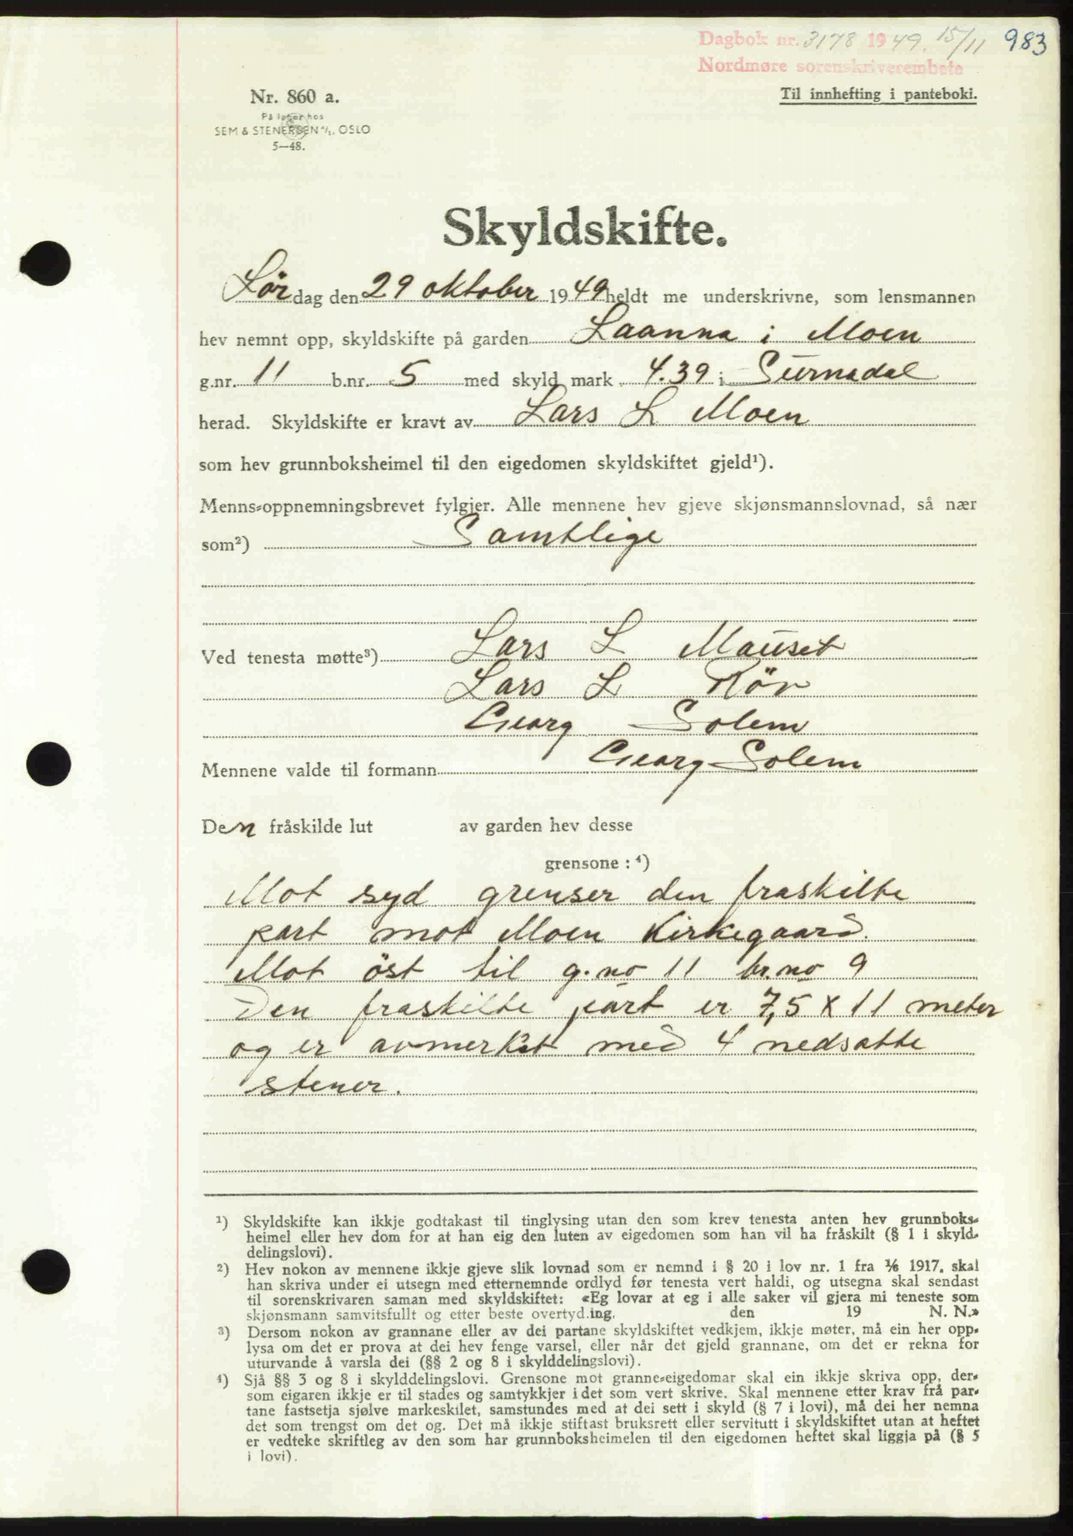 Dagbok nr. 3178 1949. 15/11 983
Nordmøre sorenskriverembete
Nr. 860 a.
Til innhefting i panteboki.
På lager hos
SEM & STENERSEN A/S, OSLO
5—48.
Skyldskifte.
Lördag den 29 oktober 1949 heldt me underskrivne, som lensmannen
hev nemnt opp, skyldskifte på garden Laanna i Moen
g.nr. 11 b.nr. 5 med skyld mark 4.39 i Surnadal
herad. Skyldskifte er kravt av Lars L Moen
som hev grunnboksheimel til den eigedomen skyldskiftet gjeld¹).
Menns-oppnemningsbrevet fylgjer. Alle mennene hev gjeve skjønsmannslovnad, så nær
som²) Samtlige
Ved tenesta møtte³) Lars L Mauset
Lars L Rör
Georg Solem
Mennene valde til formann Georg Solem
Den fråskilde lut av garden hev desse
grensone : ⁴)
Mot syd grenser den fraskilte
part mot Moen Kirkegaard.
Mot öst til g.no 11 br.no 9
Den fraskilte part er 7,5 x 11 meter
og er avmerket med 4 nedsatte
stener.
¹) Skyldskifte kan ikkje godtakast til tinglysing utan den som krev tenesta anten hev grunnboks-
heimel eller hev dom for at han eig den luten av eigedomen som han vil ha fråskilt (§ 1 i skyld-
delingslovi).
²) Hev nokon av mennene ikkje gjeve slik lovnad som er nemnd i § 20 i lov nr. 1 fra ⅙ 1917, skal
han skriva under ei utsegn med etternemnde ordlyd før tenesta vert haldi, og utsegna skal sendast
til sorenskrivaren saman med skyldskiftet: «Eg lovar at eg i alle saker vil gjera mi teneste som
skjønsmann samvitsfullt og etter beste overtyding. den 19 N. N.»
³) Dersom nokon av grannane eller av dei partane skyldskiftet vedkjem, ikkje møter, må ein her opp-
lysa om det er prova at dei hev fenge varsel, eller når det gjeld grannane, om det er rekna for
uturvande å varsla dei (§§ 2 og 8 i skylddelingslovi).
⁴) Sjå §§ 3 og 8 i skylddelingslovi. Grensone mot granne-eigedomar skal ein ikkje skriva opp, der-
som eigaren ikkje er til stades og samtykkjer i det som vert skrive. Skal mennene etter krav frå par-
tane fastsetja sjølve markeskilet, samstundes med at dei sett i skyld (§ 7 i lovi), må dei her nemna
det som trengst om det og. Det må ikkje stiftast bruksrett eller servitutt i skyldskiftet utan at heftet
er vedteke skriftleg av den som har grunnboksheimelen til den eigedomen heftet skal liggja på (§ 5
i lovi).